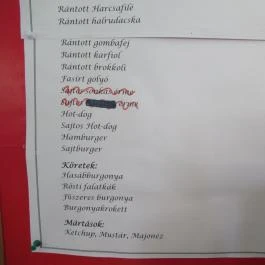 Rántott Harcsafilé
Rántott halrudacska
Rántott gombafej
Rántott karfiol
Rántott brokkoli
Fasírt golyó
Hot-dog
Sajtos Hot-dog
Hamburger
Sajtburger
Köretek:
Hasábburgonya
Rösti falatkák
Fűszeres burgonya
Burgonyakrokett
Mártások:
Ketchup, Mustár, Majonéz